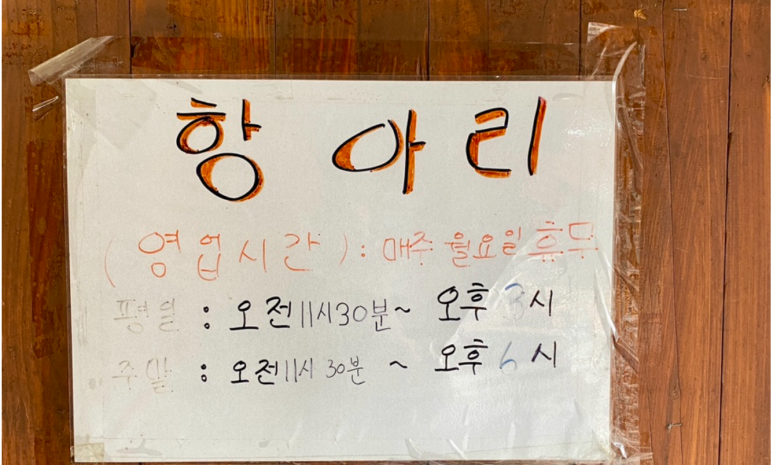 항아리
(영업시간) : 매주 월요일 휴무
평일 : 오전 11시30분~ 오후 3시
주말 : 오전 11시 30분 ~ 오후 6시